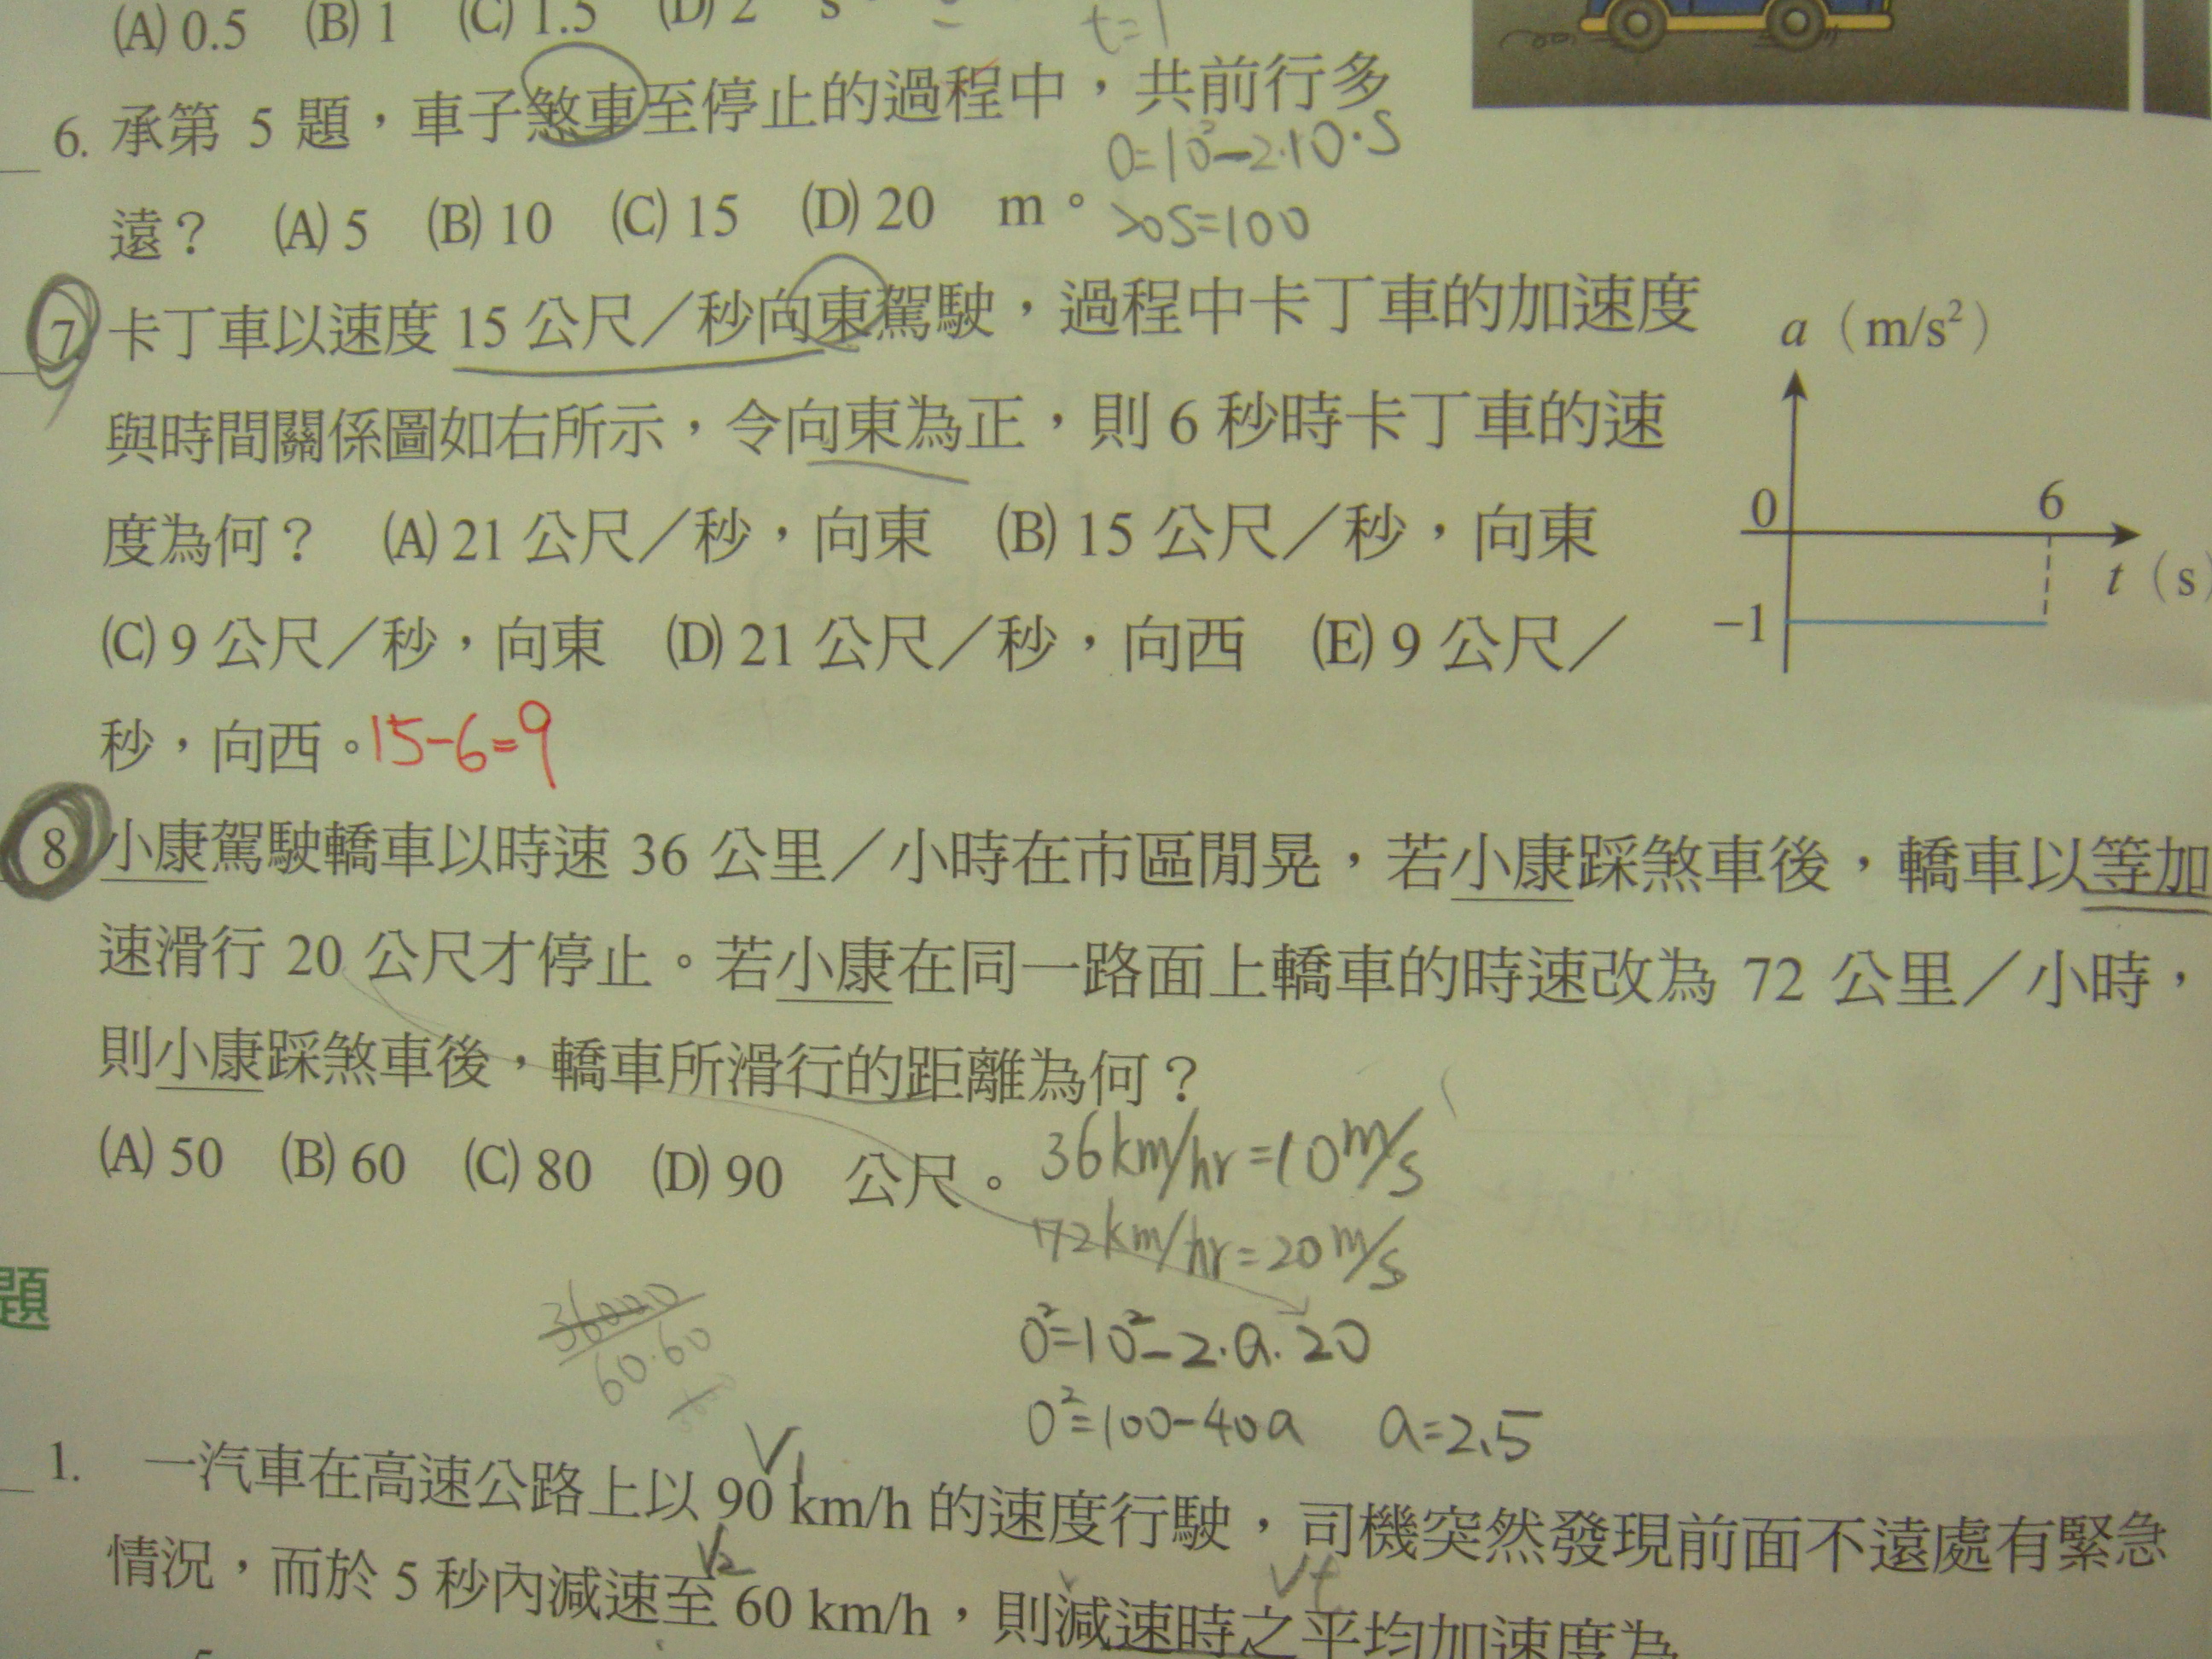 (A) 0.5 (B) 1 (C) 1.5 (D) 2 s
t=1
6. 承第 5 題，車子煞車至停止的過程中，共前行多
0=10²-2·10·S
遠？ (A) 5 (B) 10 (C) 15 (D) 20 m。
20S=100
7 卡丁車以速度 15 公尺／秒向東駕駛，過程中卡丁車的加速度
與時間關係圖如右所示，令向東為正，則 6 秒時卡丁車的速
度為何？ (A) 21 公尺／秒，向東 (B) 15 公尺／秒，向東
(C) 9 公尺／秒，向東 (D) 21 公尺／秒，向西 (E) 9 公尺／
秒，向西。15-6=9
a（m/s²）
0 6
t（s）
-1
8 小康駕駛轎車以時速 36 公里／小時在市區閒晃，若小康踩煞車後，轎車以等加
速滑行 20 公尺才停止。若小康在同一路面上轎車的時速改為 72 公里／小時，
則小康踩煞車後，轎車所滑行的距離為何？
(A) 50 (B) 60 (C) 80 (D) 90 公尺。
36km/hr=10m/s
72km/hr=20m/s
0²=10²-2·a·20
0²=100-40a a=2.5
36000
60·60
題
V1
1. 一汽車在高速公路上以 90 km/h 的速度行駛，司機突然發現前面不遠處有緊急
V2
情況，而於 5 秒內減速至 60 km/h，則減速時之平均加速度為